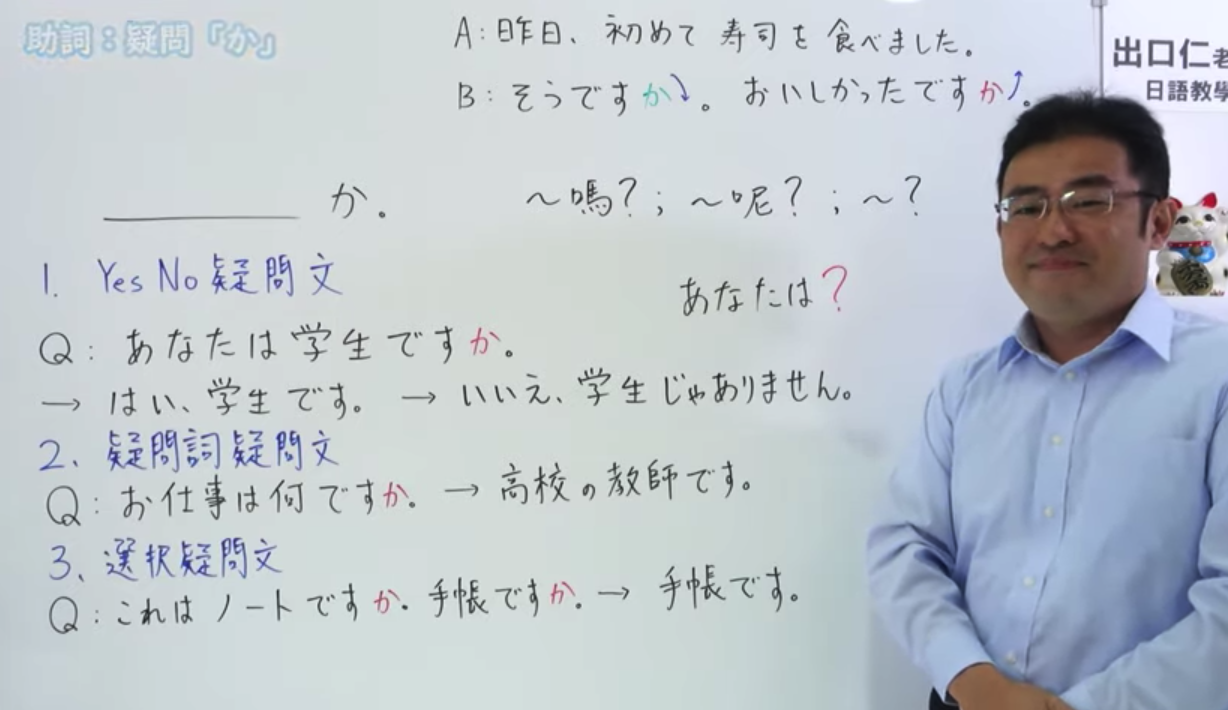 助詞:疑問「か」
A:昨日、初めて寿司を食べました。
B:そうですか↘。おいしかったですか↗。
出口仁老
日語教學
______か。 ～嗎?;～呢?;～?
1. Yes No疑問文
あなたは?
Q:あなたは学生ですか。
→ はい、学生です。 → いいえ、学生じゃありません。
2、疑問詞疑問文
Q:お仕事は何ですか。→ 高校の教師です。
3、選択疑問文
Q:これはノートですか。手帳ですか。→ 手帳です。